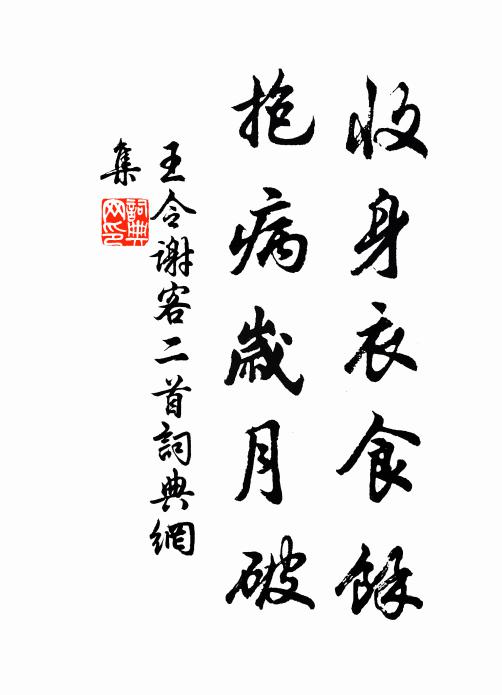 收身衣食餘
抱病歲月破
王令謝客二首詞典網
集
詞典
网印